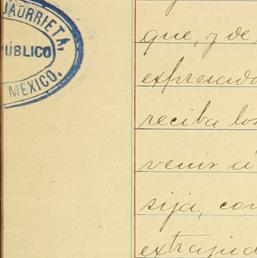 JAURRIETA,
PÚBLICO
MEXICO.
que, y de
expresado
reciba los
venir á
sija, con
extrajud